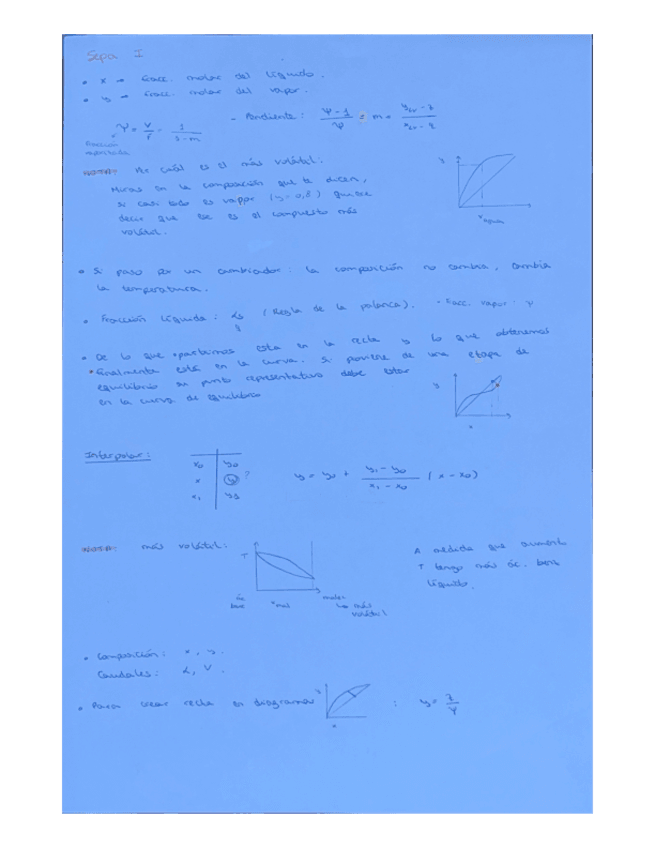 Sepa I
• x → fracc. molar del líquido.
• y → fracc. molar del vapor.
Ψ = V/F = 1/(1-m) - Pendiente: (Ψ-1)/Ψ = m =
Fracción
NOTA: Ver cuál es el más volátil:
Miras en la composición que te dicen,
si casi todo es vapor (y=0,8) quiere
decir que ese es el compuesto más
volátil.
y
x
• Si paso por un cambiador: la composición no cambia, cambia
la temperatura.
• Fracción líquida: (Regla de la palanca). - Fracc. vapor: Ψ
• De lo que partimos esta en la recta y lo que obtenemos
finalmente está en la curva. Si proviene de una etapa de
equilibrio su punto representativo debe estar
en la curva de equilibrio
y
x
Interpolar:
x0 y0
x y ?
x1 y1
y = y0 + (y1 - y0)/(x1 - x0) (x - x0)
NOTA: más volátil:
T
más
volátil
A medida que aument
T tengo más ác. benz
líquido.
• Composición: x, y.
Caudales: L, V.
• Para crear recta en diagramas
y
x
: y = z/Ψ